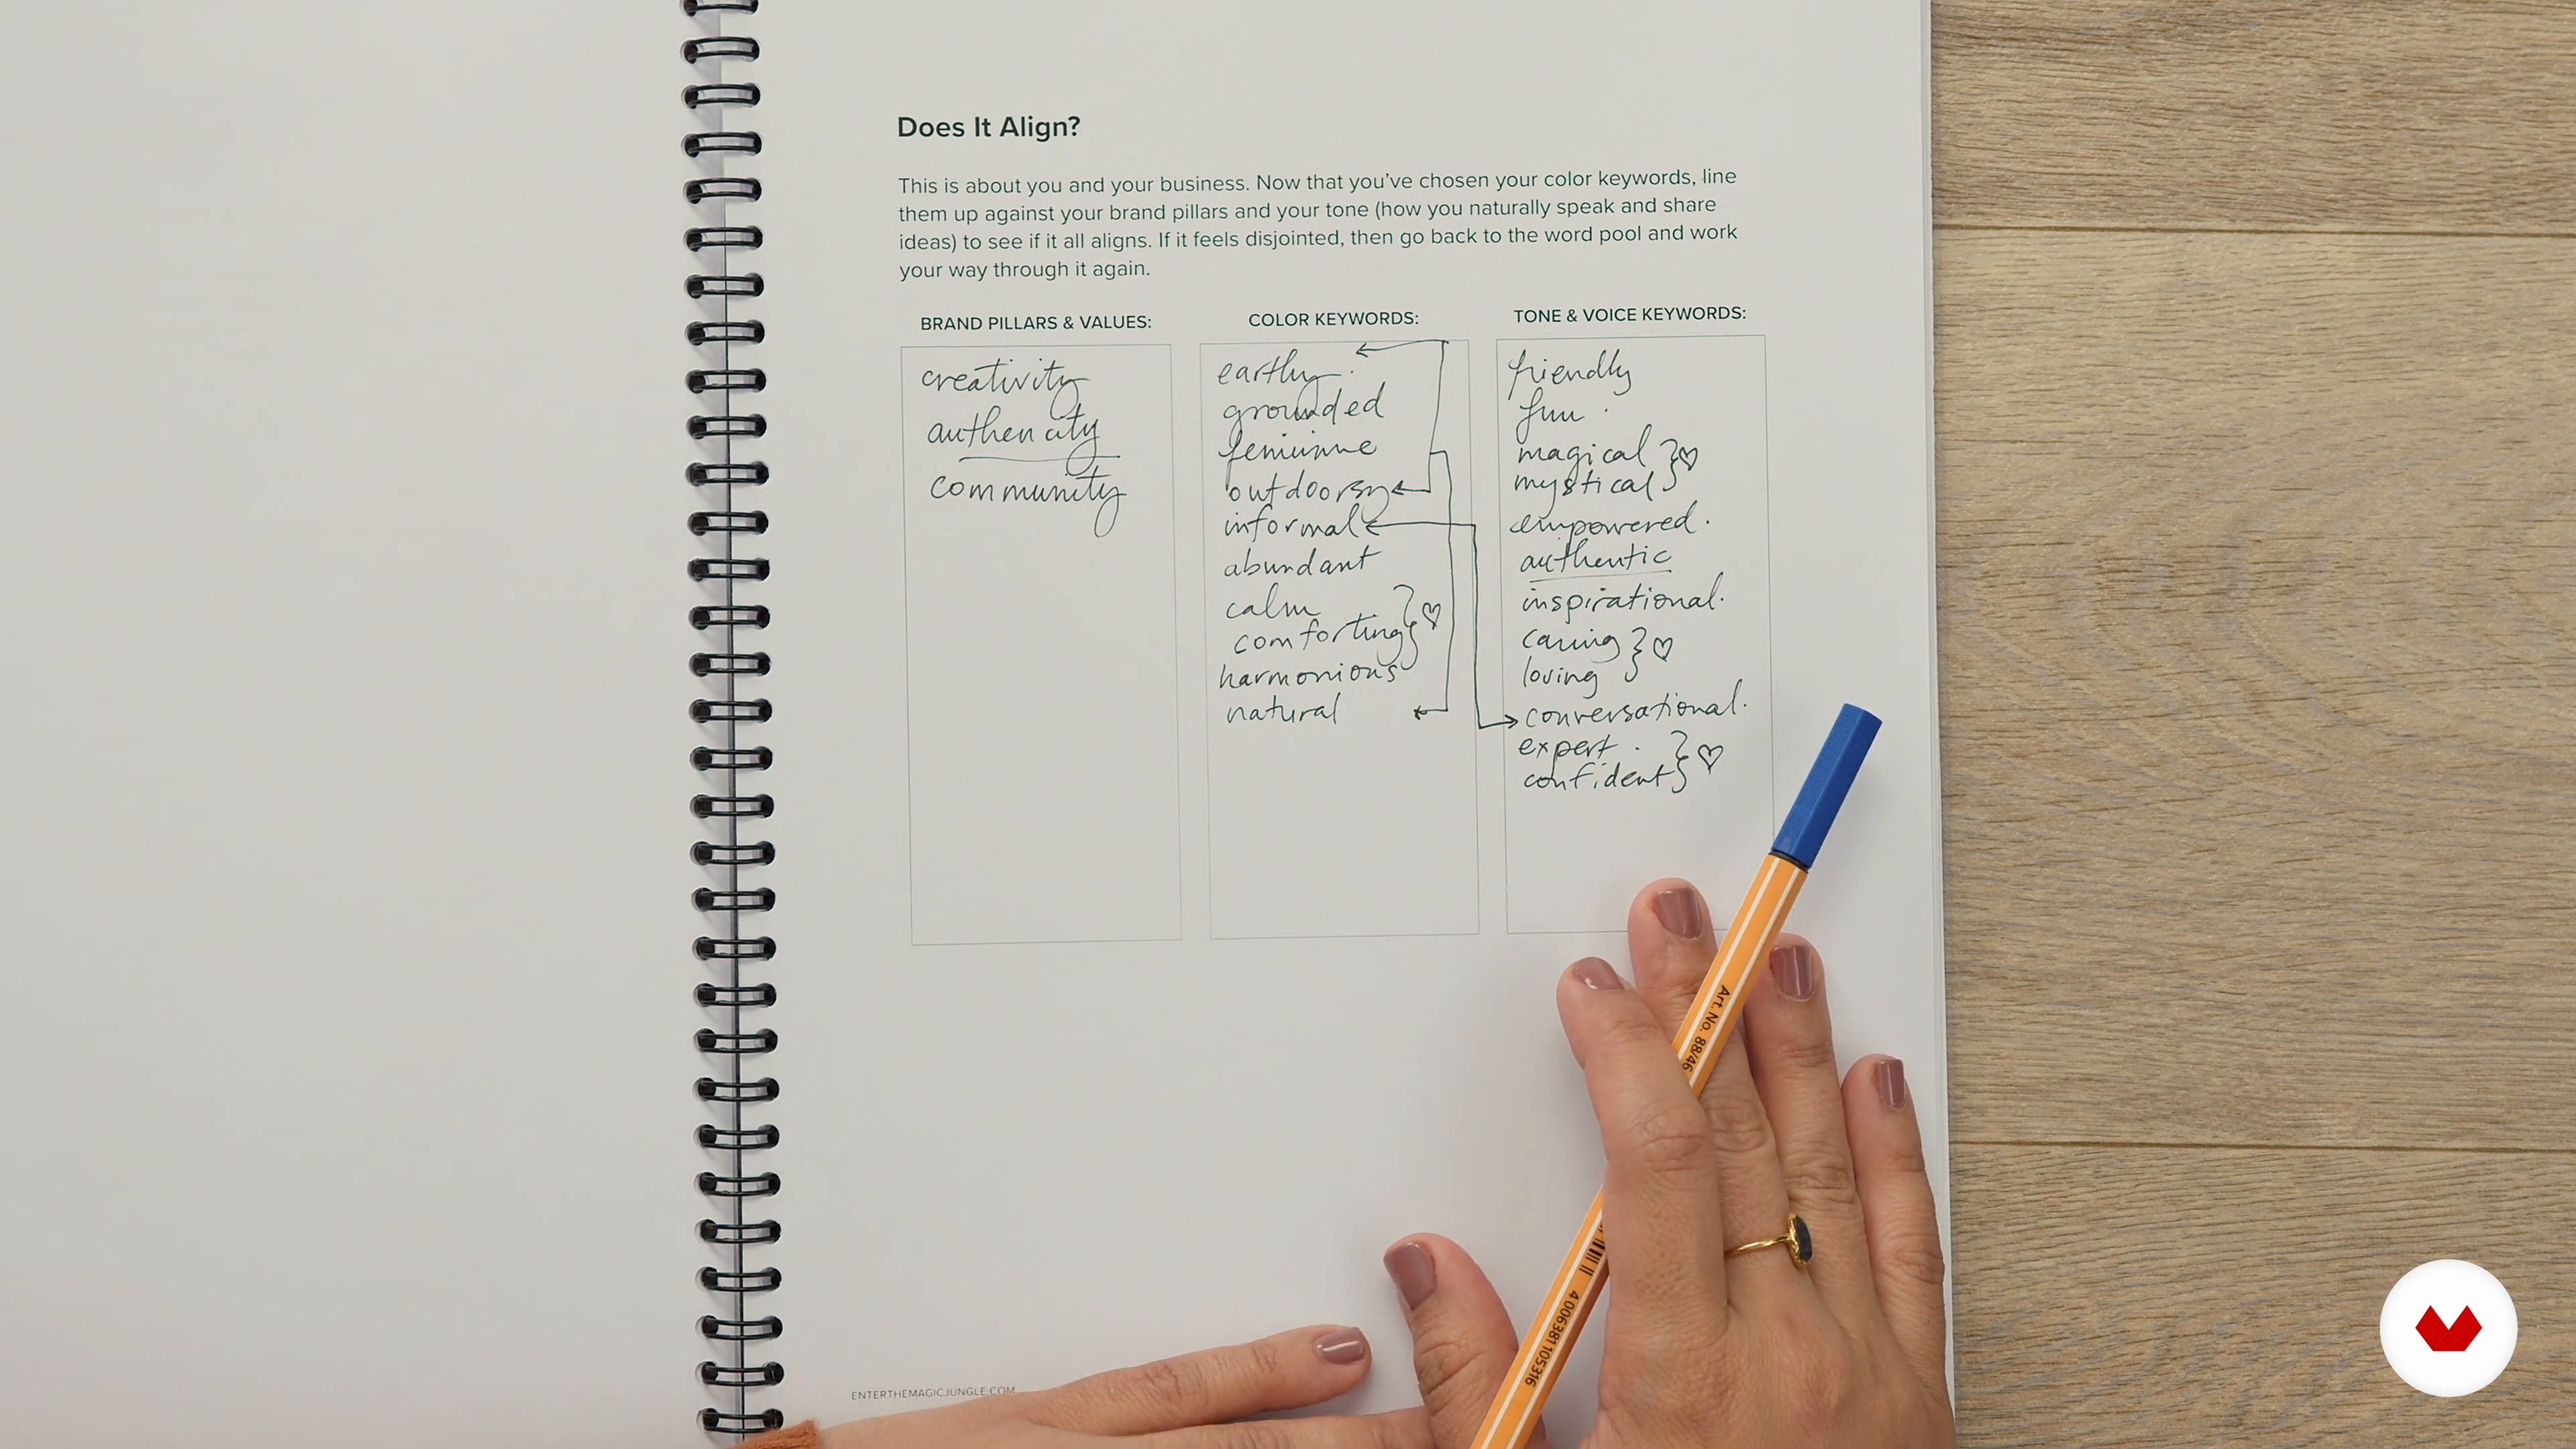 Does It Align?
This is about you and your business. Now that you've chosen your color keywords, line
them up against your brand pillars and your tone (how you naturally speak and share
ideas) to see if it all aligns. If it feels disjointed, then go back to the word pool and work
your way through it again.
BRAND PILLARS & VALUES:
creativity
authencity
community
COLOR KEYWORDS:
earthy
grounded
feminine
outdoorsy
informal
abundant
calm
comforting
harmonious
natural
TONE & VOICE KEYWORDS:
friendly
fun
magical
mystical
empowered.
authentic
inspirational.
caring
loving
conversational.
expert
confident
Art. No. 88/46
4 006381 105316
ENTERTHEMAGICJUNGLE.COM